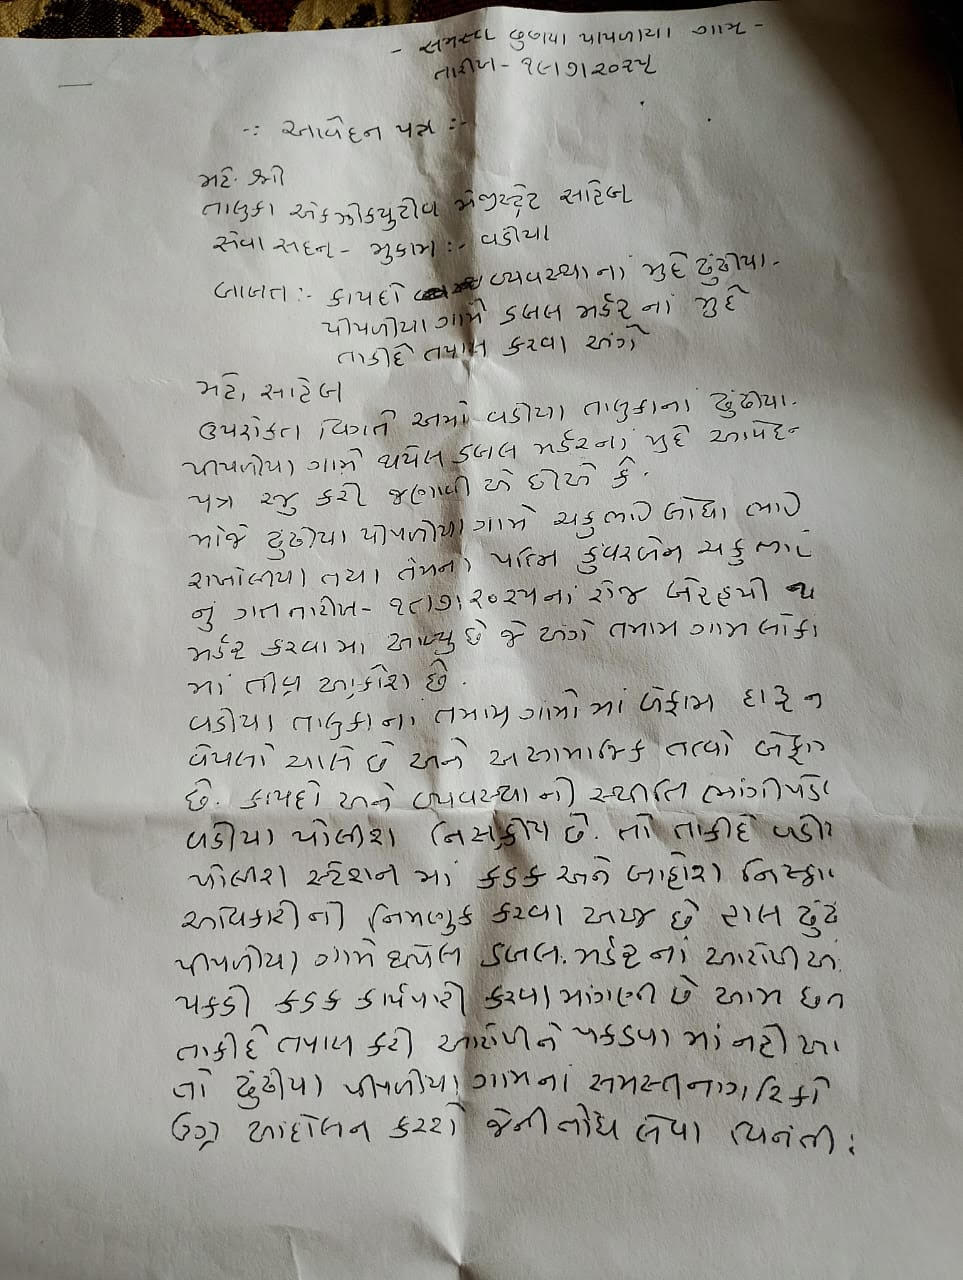 - સમસ્ત ઢુંઢીયા પીપળીયા ગામ -
તારીખ - ૧૯/૭/૨૦૨૫
-: આવેદન પત્ર :-
મહે. શ્રી
તાલુકા એકઝીકયુટીવ મેજીસ્ટ્રેટ સાહેબ
સેવા સદન - મુકામ :- વડીયા
બાબત :- કાયદો વ્યવસ્થાનાં મુદે ઢુંઢીયા -
પીપળીયા ગામે ડબલ મર્ડર નાં મુદે
તાકીદે તપાસ કરવા અંગે
મહે, સાહેબ
ઉપરોકત વિગતે અમો વડીયા તાલુકાનાં ઢુંઢીયા -
પીપળીયા ગામે થયેલ ડબલ મર્ડરનાં મુદે આવેદન
પત્ર રજુ કરી જણાવી એ છીએ કે.
મોજે ઢુંઢીયા પીપળીયા ગામે ચકુભાઈ બોઘા ભાઈ
રાખોલીયા તથા તેમના પત્નિ કુંવરબેન ચકુભાઈ
નું ગત તારીખ - ૧૮/૭/૨૦૨૫નાં રોજ બેરહમી થી
મર્ડર કરવામાં આવ્યુ છે જે અંગે તમામ ગામ લોકો
માં તીવ્ર આક્રોશ છે.
વડીયા તાલુકાનાં તમામ ગામો માં બેફામ દારૂ ન
વેપલો ચાલે છે અને અસામાજિક તત્વો બેફામ
છે. કાયદો અને વ્યવસ્થાની સ્થીતિ ભાંગીપડે
વડીયા પોલીશ નિસક્રીય છે. તો તાકીદે વડીયા
પોલીશ સ્ટેશન માં કડક અને બાહોશ
અધિકારીની નિમણુક કરવા અરજ છે હાલ ઢુંઢી
પીપળીયા ગામે થયેલ ડબલ. મર્ડર નાં આરોપી ઓ
પકડી કડક કાર્યવાહી કરવા માંગણી છે આમ છતા
તાકીદે તપાસ કરી આરોપીને પકડવા માં નહી આ
તો ઢુંઢીયા પીપળીયા ગામનાં સમસ્ત નાગરિકો
ઉગ્ર આંદોલન કરશે જેની નોંધ લેવા વિનંતી :